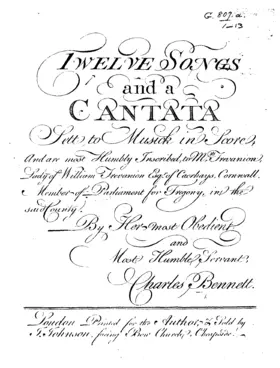 G. 809. a.
1-13
TWELVE SONGS
and a
CANTATA
Sett to Musick in Score,
And are most Humbly Inscribed, to Mrs. Trevanion,
Lady of William Trevanion Esqr. of Carhays, Cornwall.
Member of Parliament for Tregony, in the
said County.
By Her most Obedient
and
Most Humble Servant.
Charles Bennett.
London Printed for the Author, & Sold by
J. Johnson, facing Bow Church, Cheapside.